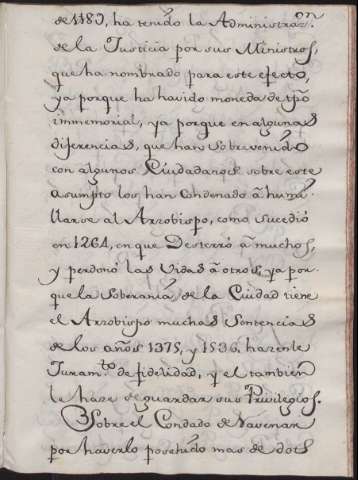 de 1183, ha tenido la Administraz.on
de la Justicia por sus Ministros,
que ha nombrado para este efecto,
ya porque ha havido moneda de tpõ
immemorial, ya porque en algunas
diferencias, que han sobrevenido
con algunos Ciudadanos sobre este
asumpto los han condenado â humi
llarse al Arzobispo, como sucediò
en 1264, en que Desterrò â muchos,
y perdonò las Vidas â otros, ya por
que la Soberanìa de la Ciudad tiene
el Arzobispo muchas Sentencias
de los años 1375, y 1536, hazenle
Juram.to de fidelidad, y el tambien
le haze de guardar sus Privilegios.
Sobre el Condado de Vavenan
por haverlo posehido mas de dots